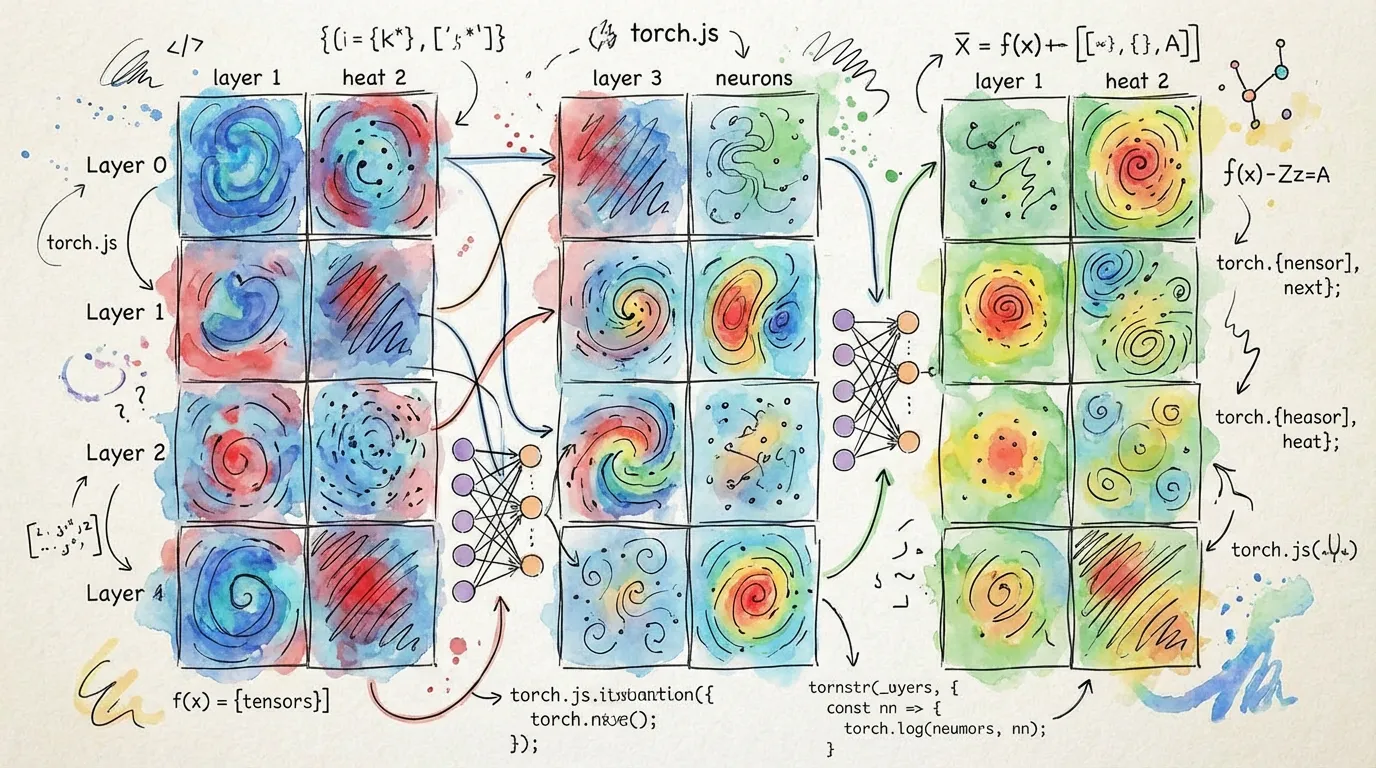 </>
{(i = {k*}, [' *']}
torch.js
X̄ = f(x)+ [[ }, {}, A]]
layer 1
heat 2
layer 3
neurons
layer 1
heat 2
Layer 0
f(x)-Zz=A
torch.js
torch.{nensor],
next};
Layer 1
? ?
torch.{heasor],
heat};
Layer 2
torch.js(
Layer 4
f(x) = {tensors}]
torch.js. ({
torch. ();
});
tornstr(_uyers, {
const nn => {
torch.log(neumors, nn);
}